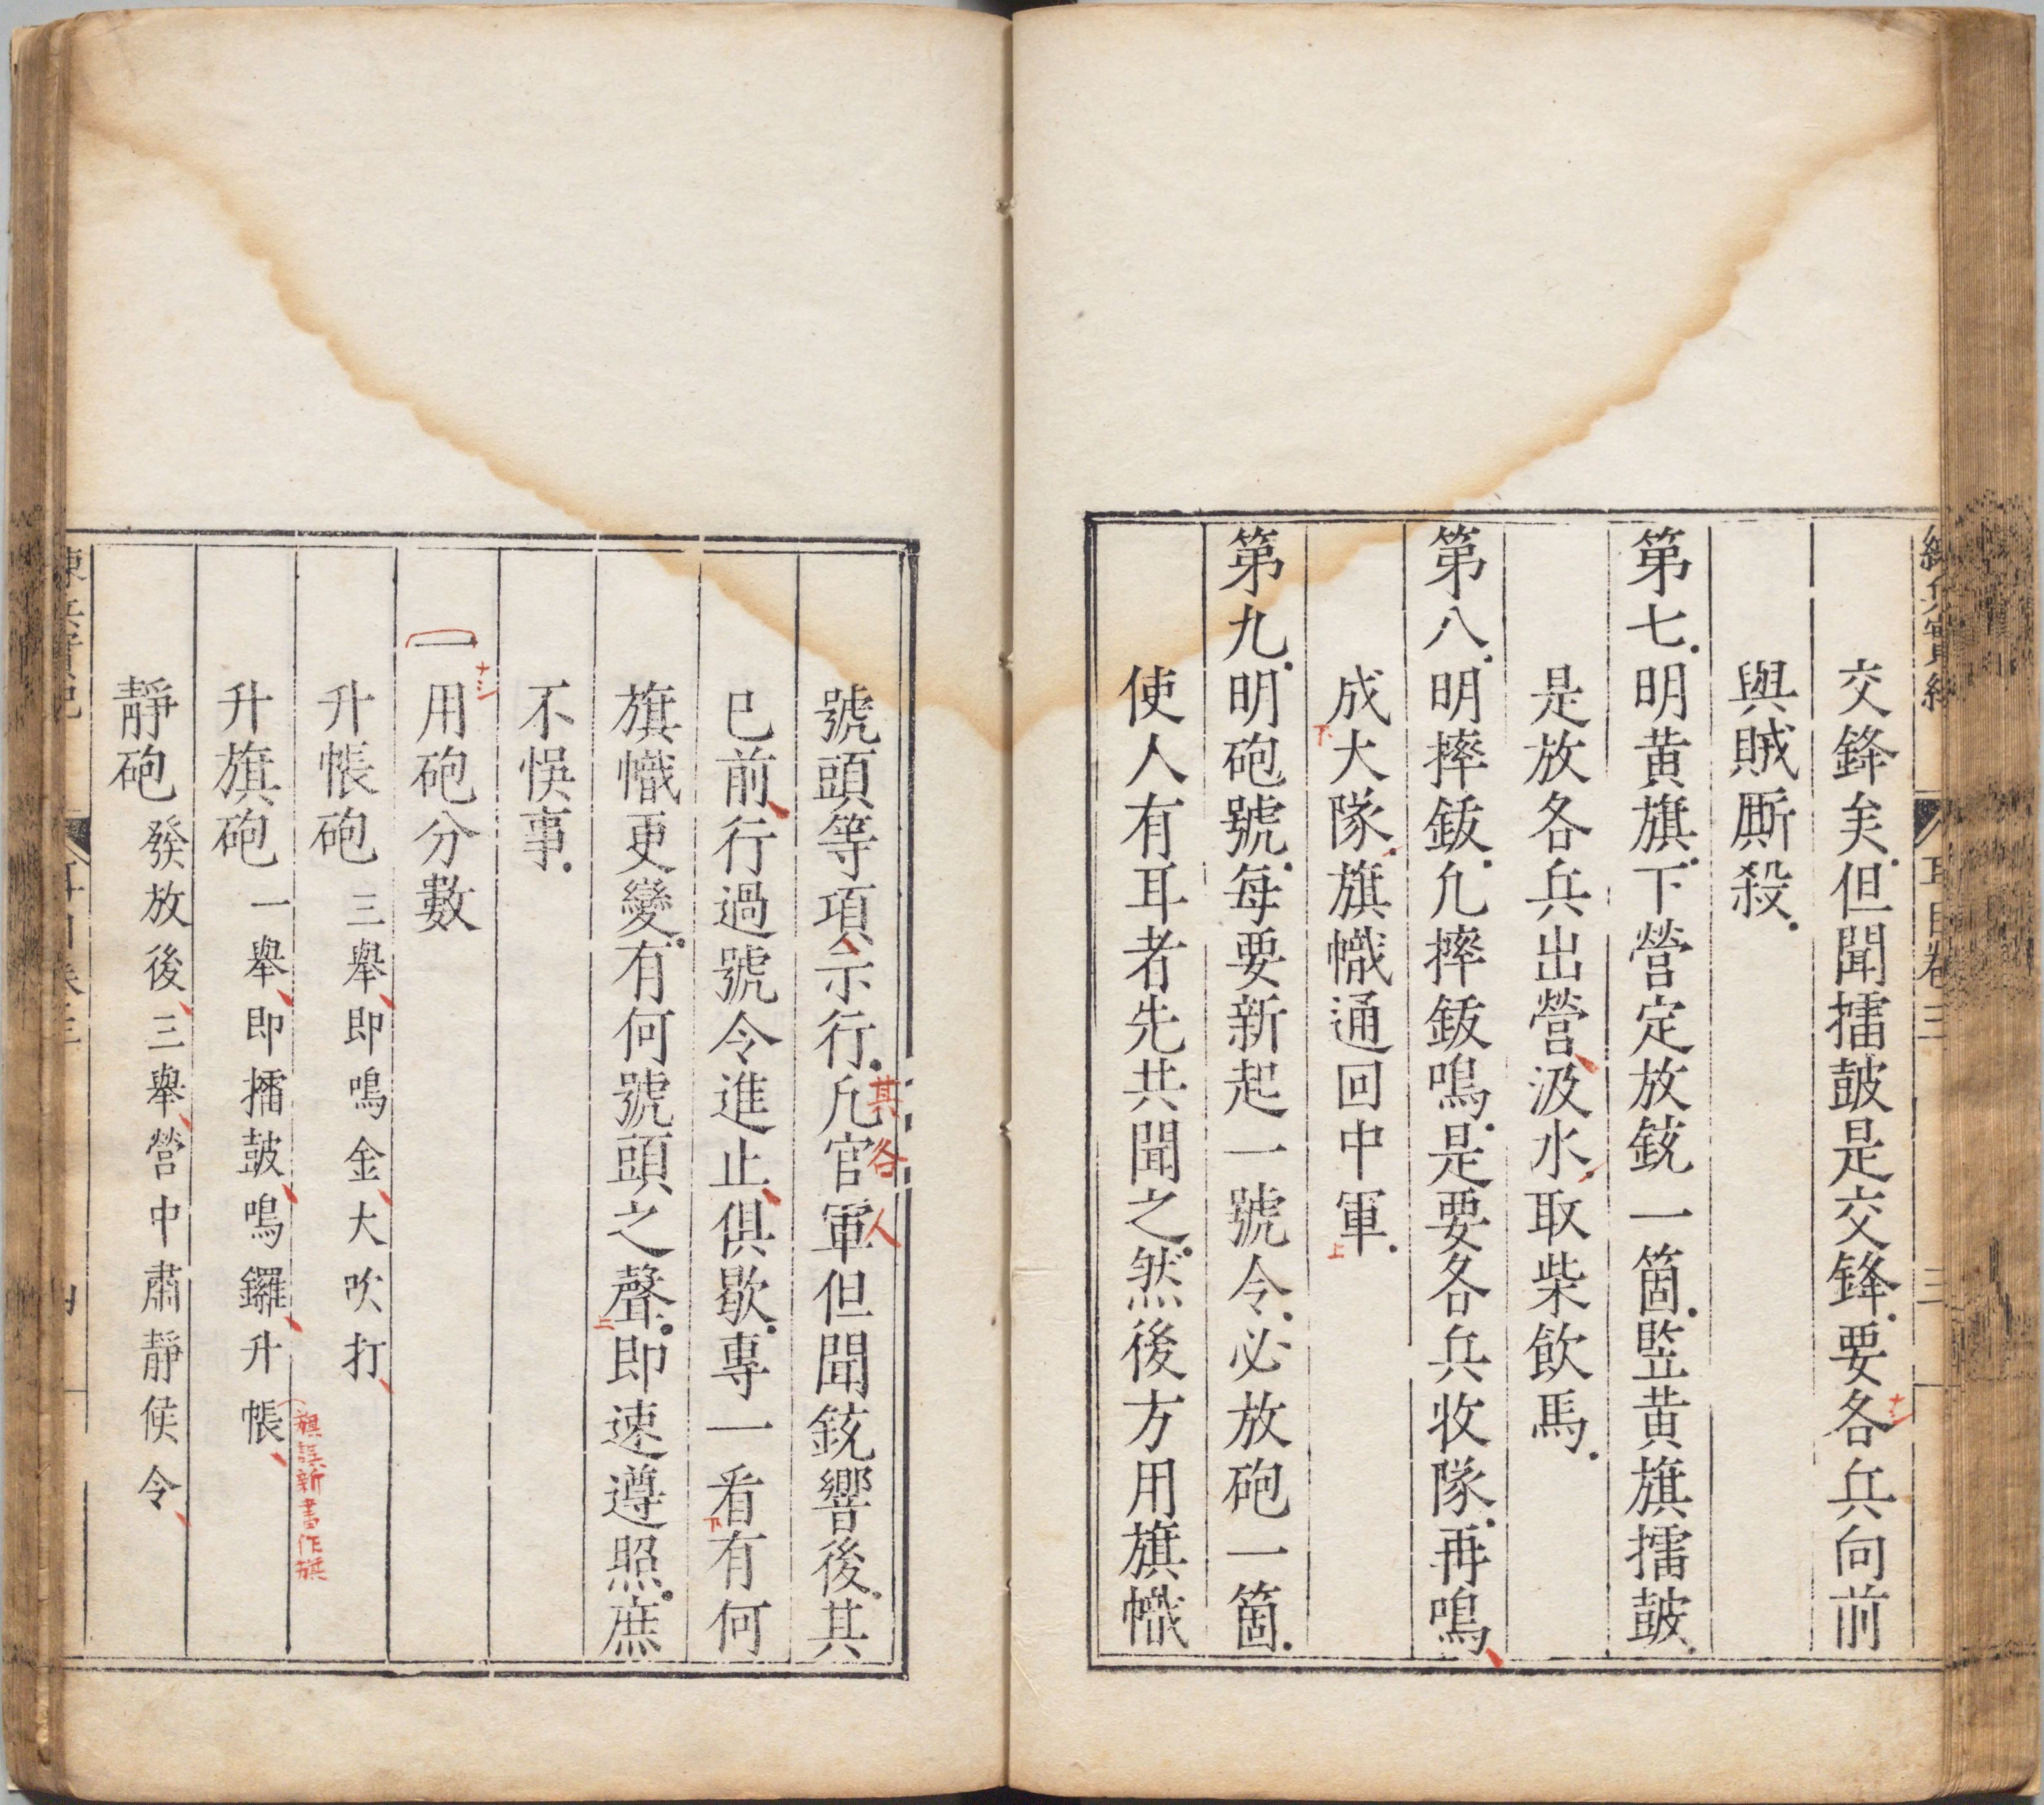 交鋒矣但聞擂鼓是交鋒要各兵向前
與賊厮殺
第七明黄旗下營定放銃一箇竪黄旗擂鼓
是放各兵出營汲水取柴飲馬
第八明摔鈸凢摔鈸鳴是要各兵收隊再鳴
成大隊旗幟通回中軍
第九明砲號每要新起一號令必放砲一箇
使人有耳者先共聞之然後方用旗幟
號頭等項示行凢官軍但聞銃響後其
其各人
已前行過號令進止俱歇專一看有何
旗幟更變有何號頭之聲即速遵照庶
不悞事
一用砲分數
升帳砲三舉即鳴金大吹打
升旗砲一舉即擂鼓鳴鑼升帳
旗誤新書作旗
靜砲發放後三舉營中肅靜候令